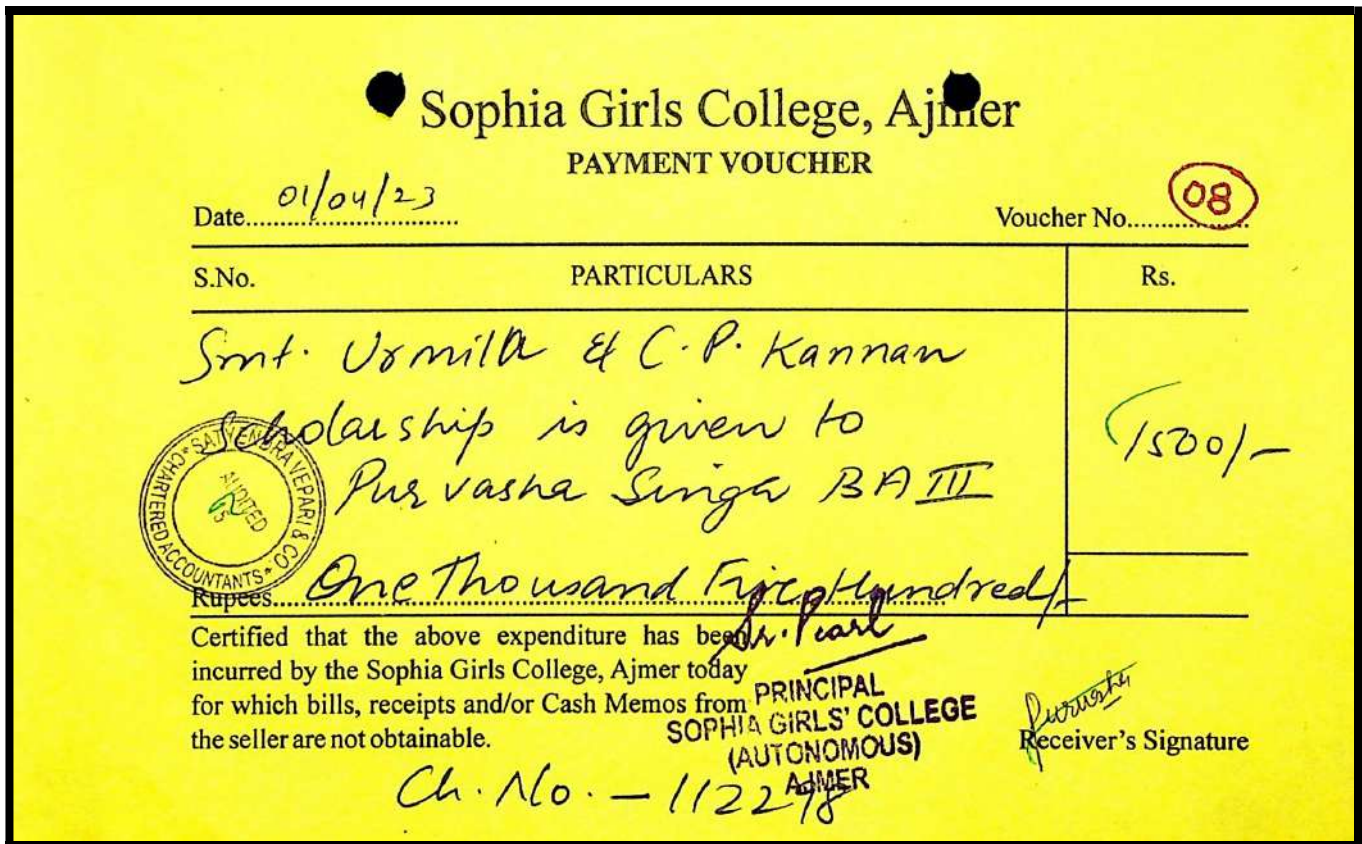 Sophia Girls College, Ajmer
PAYMENT VOUCHER
Date.......01/04/23....... Voucher No.......08.......
S.No. PARTICULARS Rs.
Smt. Urmila & C.P. Kannan
Scholarship is given to 1500/-
Purvasha Singh BA III
CHARTERED ACCOUNTANTS * SATYENDRA VEPARI & CO
AUDITED
Rupees....One Thousand Five Hundred/-
Certified that the above expenditure has been
incurred by the Sophia Girls College, Ajmer today
for which bills, receipts and/or Cash Memos from
the seller are not obtainable.
Sr. Pearl
PRINCIPAL
SOPHIA GIRLS' COLLEGE
(AUTONOMOUS)
AJMER
Receiver's Signature
Ch. No. - 112298